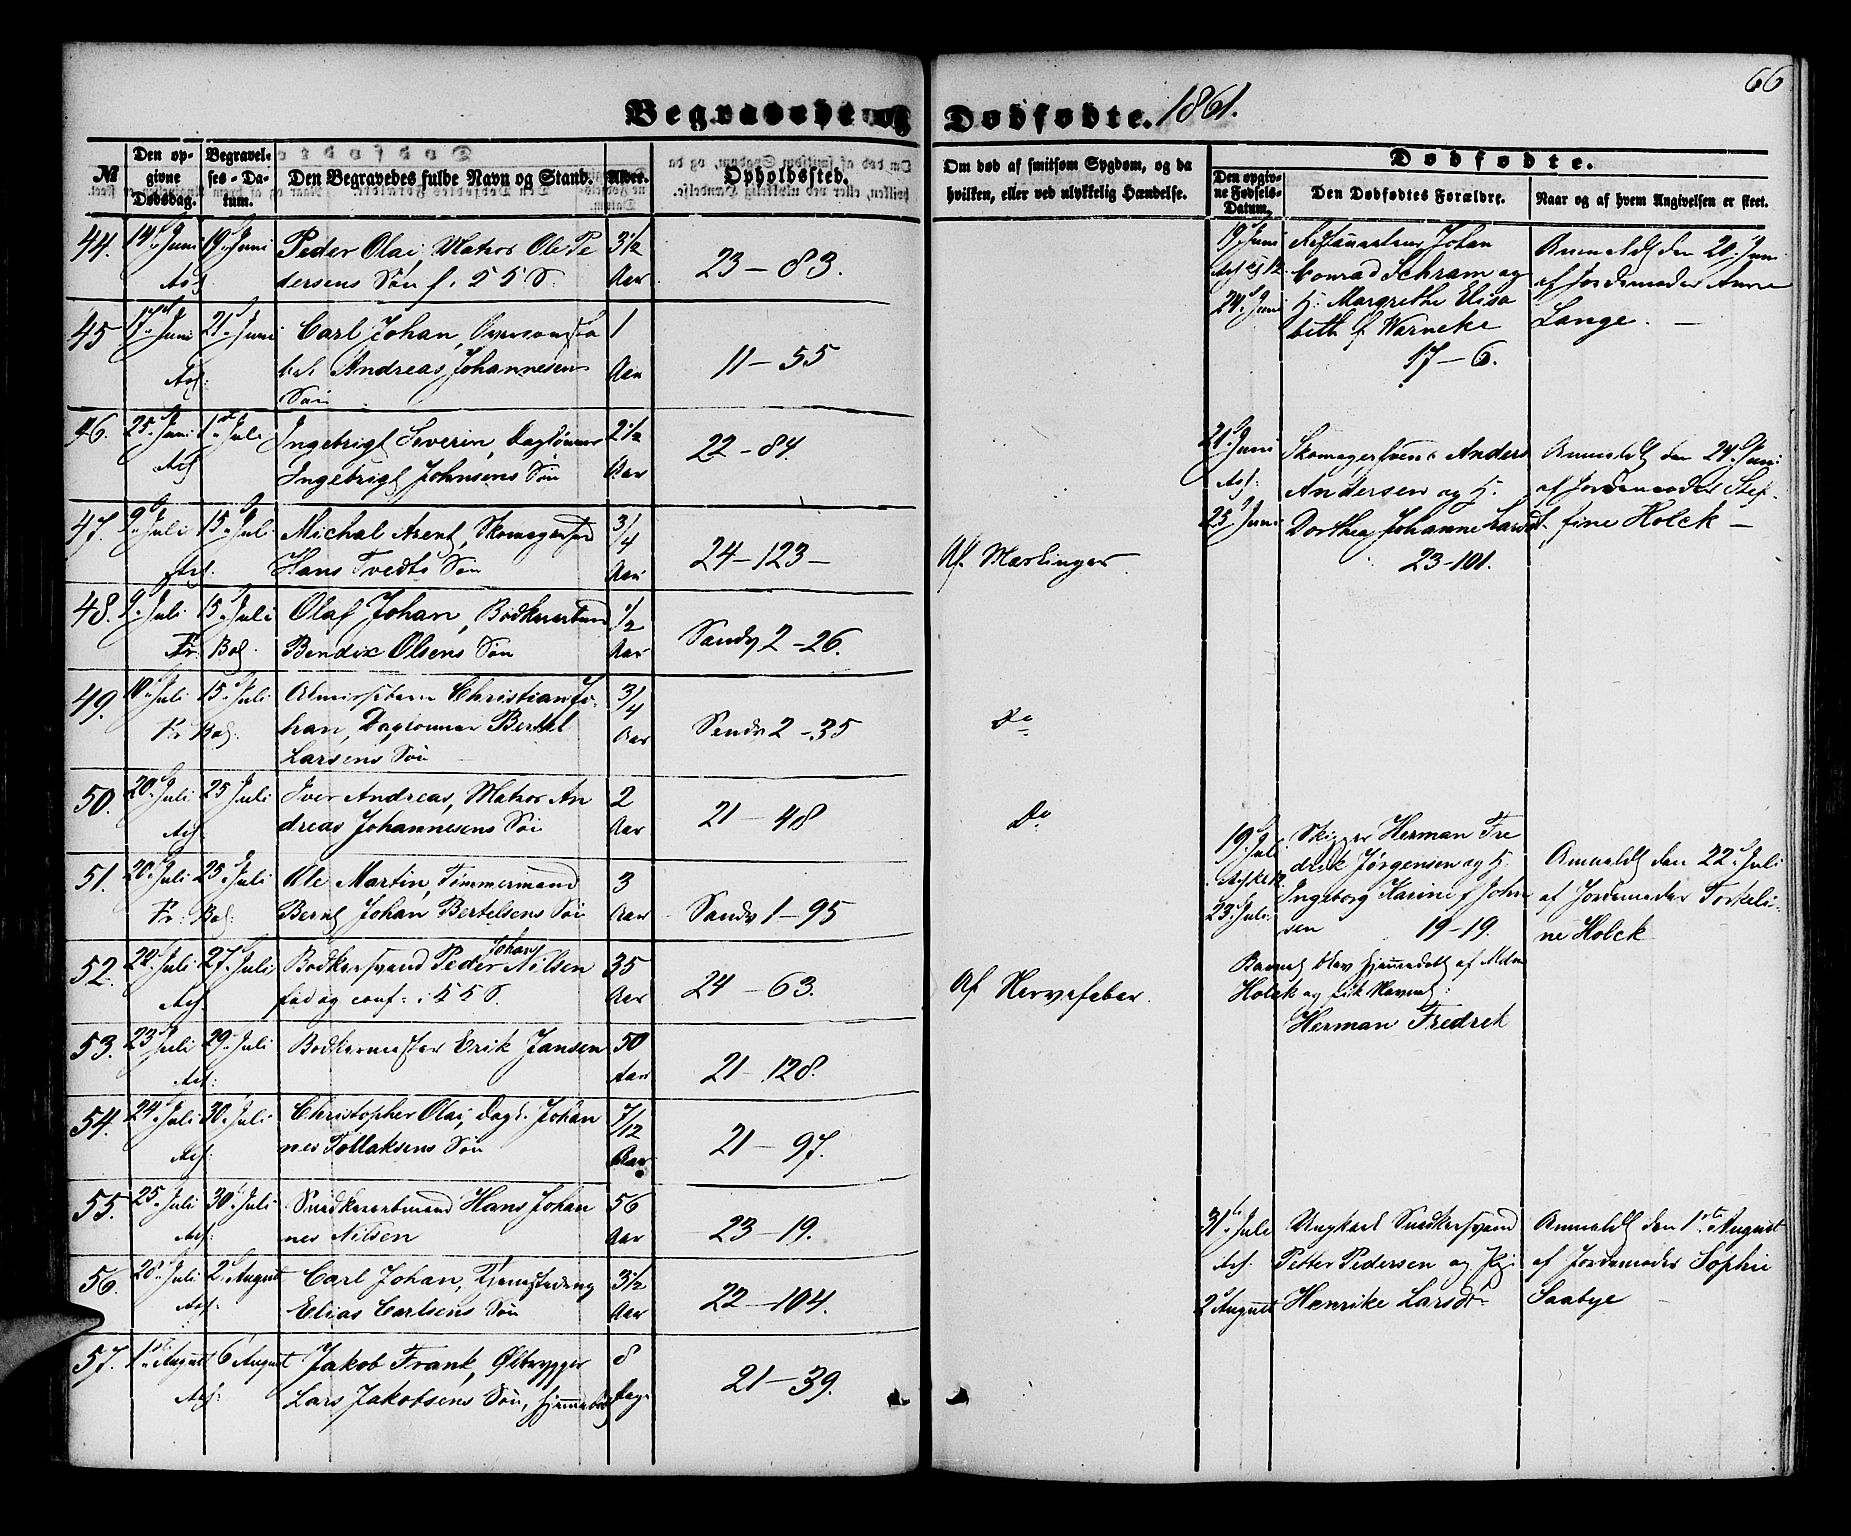 66
Begravede og Dødfødte. 1861.
№
Den opgivne Dødsdag.
Begravelses-Datum.
Den Begravedes fulde Navn og Stand.
Alder.
Opholdssted.
Om død af smitsom Sygdom, og da
hvilken, eller ved ulykkelig Hændelse.
Dødfødte.
Den opgivne Fødsels-Datum.
Den Dødfødtes Forældre.
Naar og af hvem Angivelsen er skeet.
44. 14. Juni 19. Juni Peder Olai, Matros Ole Pe 3½
dersens Søn f. i S S S. Aar 23 – 83.
45 17. Juni 21. Juni Carl Johan, 1
Andreas Johannesens Aar 11 – 55
Søn
46. 25. Juni 1. Juli Ingebrigt Severin, Daglønner 2½
Ingebrigt Johnsens Søn Aar 22 – 84
47. 9. Juli 15. Juli Michal Arent, Skomagersvend 3/4
Hans Tvedts Søn Aar 24 – 123 – Af Mæslinger
48. 9. Juli 15. Juli Olaf Johan, Bødkersvend 1/2
Fr. Bol. Bendix Olsens Søn Aar Sandv 2 – 26.
49. 10. Juli 15. Juli Christian Jo- 3/4
Fr. Bol. han, Daglønner Bertel Aar Sandv 2 – 35 Do
Larsens Søn
50. 20. Juli 25 Juli Iver Andreas, Matros An 2
dreas Johannesens Søn Aar 21 – 48 Do
51. 20. Juli 25. Juli Ole Martin, Tømmermand 3
Fr. Bol. Bernt Johan Bertelsens Søn Aar Sandv 1 – 95
52. 22. Juli 27. Juli Bødkersvend Peder Johan Nilsen 35
fød og conf. i S S S. Aar 24 – 63. Af Nervefeber.
53. 23 Juli 29. Juli Bødkermester Erik Jansen 50
Aar 21 – 128.
54. 24. Juli 30. Juli Christopher Olai, Dagl. Johan 7/12
nes Tollaksens Søn Aar 21 – 97.
55. 25. Juli 30. Juli Snedkerarbmand Hans Johan 56
nes Nilsen Aar 23 – 19.
56. 28. Juli 2. August Carl Johan, 3½
Elias Carlsens Søn Aar 22 – 104.
57. 1. August 6 August Jakob Frank, Ølbrygger 8
Lars Jakobsens Søn, hjemmedøbt Dage 21 – 39.
19 Juni Johan
Conrad Schram og
24. Juni H. Margrethe Elisa
beth f. Warneke
17 – 6.
Anmeldt den 20. Juni
af Jordemoder Anne
Lange. –
21. Juni Skomagersvend Anders
Andersen og H.
25. Juni Dorthea Johanne Larsdt.
23 – 101.
Anmeldt den 24. Juni
af Jordemoder Stef-
fine Holck –
19. Juli Skipper Herman Fre
drik Jørgensen og H.
Ingeborg Karine f John
23. Juli sen 19 – 19.
Barnet blev hjemmedøbt af Mdm
Holck og fik Navnet:
Herman Fredrek
Anmeldt den 22. Juli
af Jordemoder Torkeli-
ne Holck
31. Juli Ungkarl Snedkersvend
Petter Pedersen og Pige
2. August Henrike Larsdt
Anmeldt den 1. August
af Jordemoder Sophie
Saabye –